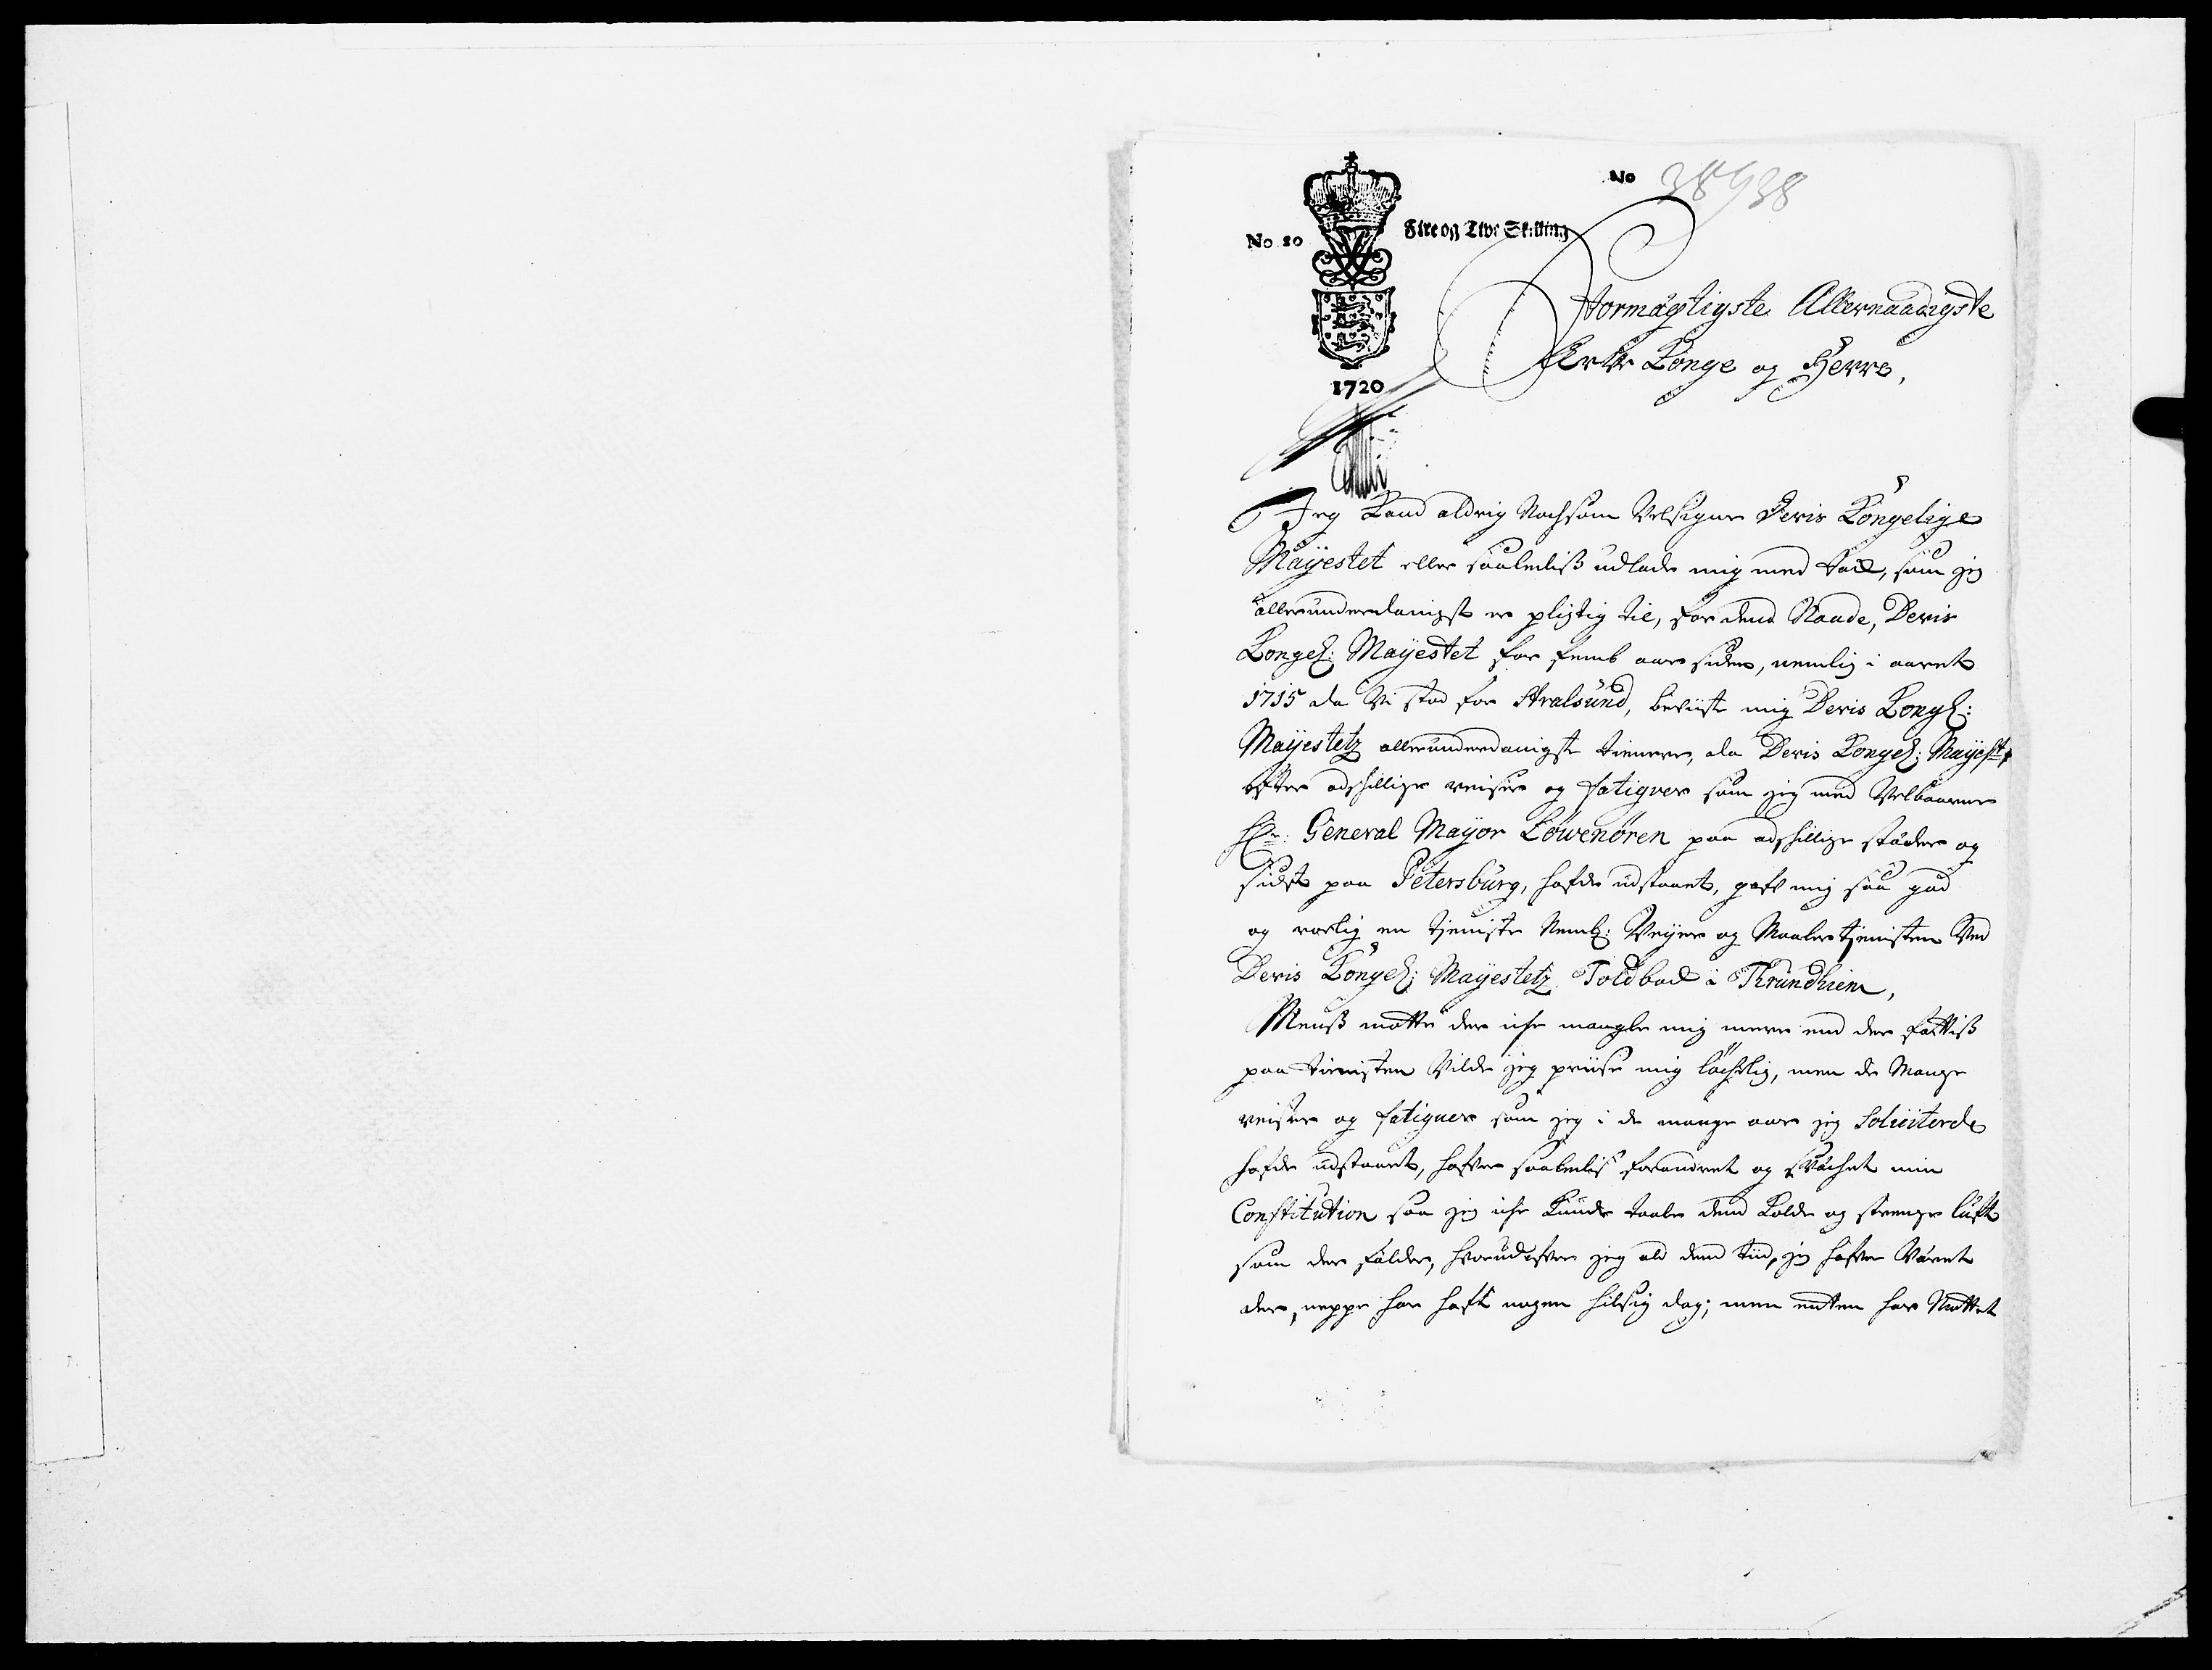 No
38938
No 20
Fire og Tive Skilling
1720
Stormägtigste Allernaadigste
Arfve Konge og Herre,
Jeg Kand aldrig Nochsom Velsigne Deris Kongelige
Mayestet eller saaledis udlade mig med tack, som jeg
allerunderdanigst er pligtig til, for dend Naade, Deris
Kongel: Mayestet for femb aar siden, nemlig i aaret
1715 da Vi stod for Stralsund, beviiste mig Deris Kongl:
Mayestetz allerunderdanigste tienere, da Deris Kongel: Mayest:
efter adskillige reiser og fatiguer som jeg med Velbaarne
Hr: General Mayor Löwenören paa adskillige städer og
sidst paa Petersburg, hafde udstaaet, gaf mig saa god
og roelig en tjeniste Neml: Veyer og Maaler tjenisten Ved
Deris Kongel: Mayestetz Toldbod i Thrundhiem,
Menß motte der iche mangle mig mere end der fattis
paa tienisten Vilde jeg prise mig löchelig, men de Mange
reiser og fatiguer som jeg i de mange aar jeg Soliciterde
hafde udstaaet, hafver saaledis forandret og svächet min
Constitution saa jeg iche Kunde taale dend Kolde og strenge luft
som der falder, hvorudofver jeg ald dend tiid, jeg hafver Väret
der, neppe har haft nogen hilsig dag; men endten har Mottet